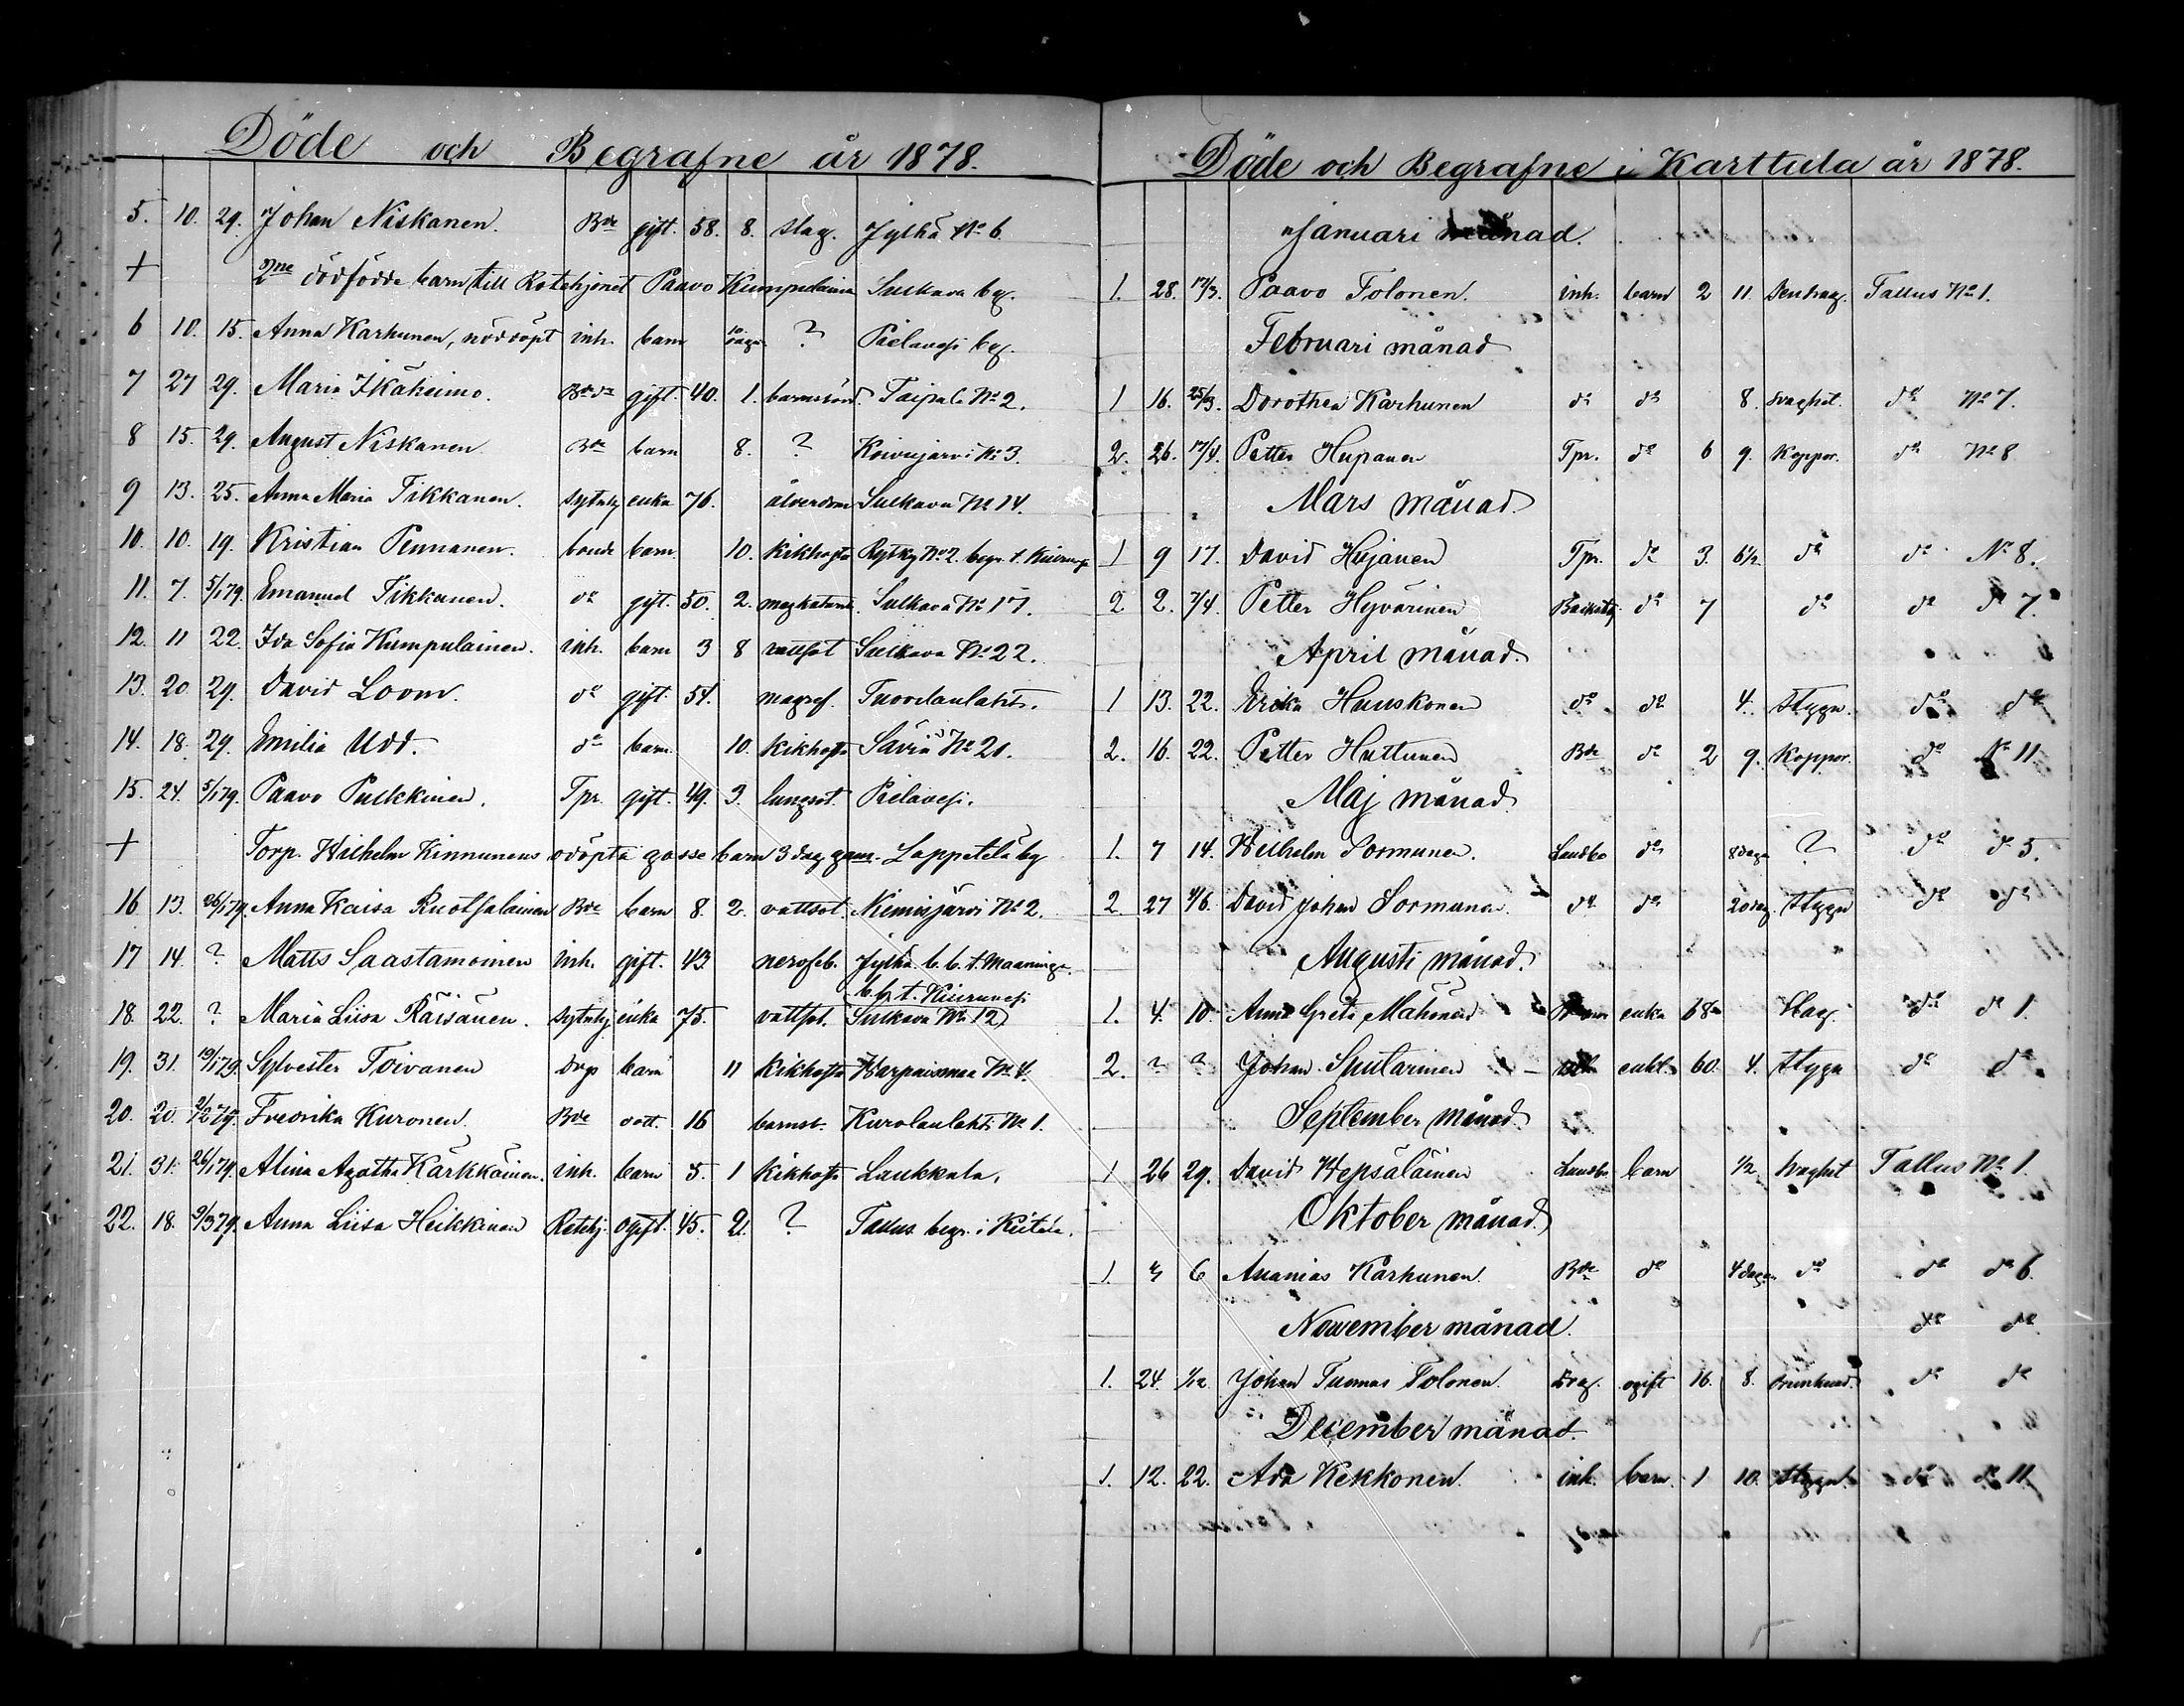 Döde och Begrafne år 1878.
5. 10. 29. Johan Niskanen. Bde gift. 58. 8. slag. Jylhä No 6.
+ 2ne dödfödde barn till Rotehjonet Paavo Kumpulainen Sulkava by.
6 10. 15. Anna Karhunen, nöddöpt inh. barn 10 dagar ? Pielavesi by.
7 27 29. Maria Ikäheimo. gift. 40. 1. barnsbörd. Taipale No 2.
8 15. 29. August Niskanen Bde barn 8. ? Koivujärvi No 3.
9 13. 25. Anna Maria Tikkanen. sytnhj enka 76. ålderdom Sulkava No 14.
10. 10. 19. Kristian Pennanen. bonde barn. 10. kikhosta Rytky No 2. begr. t. Kiuruvesi
11. 7. 5/1 79. Emanuel Tikkanen. do gift. 50. 2. magkatarrh. Sulkava No 17.
12. 11 22. Ida Sofia Kumpulainen. inh. barn 3 8 vattsot Sulkava No 22.
13. 20. 29. David Loom. do gift. 54. magref. Tuovilanlahti.
14. 18. 29. Emilia Udd. do barn. 10. kikhosta Säviä No 20.
15. 24. 5/1 79. Paavo Pulkkinen. Tpr. gift. 49. 3. lungsot. Pielavesi.
+ Torp. Wilhelm Kinnunens odöpta gosse barn 3 dag gam. Lappetelä by
16 13. 26/1 79. Anna Kaisa Ruotsalainen Bde barn 8. 2. vattsot Niemisjärvi No 2.
17 14. ? Matts Saastamoinen inh. gift. 43. nervfeb. Jylhä b. b. t. Maaninga.
b. b. t. Kiuruvesi
18. 22. ? Maria Liisa Räisänen. sytnhj enka 75. vattsot. Sulkava No 12
19. 31. 19/1 79. Sylvester Toivanen drgs barn 11 kikhosta Harpaismaa No 4.
20. 20. 2/2 79. Fredrika Kuronen. Bde dott. 16 barnsb. Kurolanlahti No 1.
21. 31. 26/1 79. Alina Agatha Kärkkäinen. inh. barn 5. 1 kikhosta Laukkala.
22. 18. 9/3 79. Anna Liisa Heikkinen Rotehj. ogift. 45. 2. ? Tallus begr. i Keitele.
Döde och Begrafne i Karttula år 1878.
Januari månad.
1. 28. 17/3. Paavo Tolonen. inh. barn 2 11. Tallus No 1.
Februari månad
1 16. 25/3. Dorothea Karhunen do do 8. svaghet. do No 7.
2. 26. 17/4. Petter Hujanen Tpr. do 6 9. koppor. do No 8
Mars månad
1 9 17. David Hujanen Tpr. do 3. 6 1/2. do do No 8.
2 2. 7/4. Petter Hyvärinen do 7 do do do 7.
April månad.
1 13. 22. Erika Huuskonen do do 4. Stygn. do do
2. 16. 22. Petter Huttunen Bde do 2 9. Koppor. do No 11
Maj månad
1. 7 14. Wilhelm Sormunen. Landbo do 8 dagar ? do do 5.
2. 27 4/6. David Johan Sormunen. do do 20 dag. Stygn do do
Augusti månad.
1. 4. 10. Anna Greta Mähönen enka 68 Slag. do do 1.
2. ? ? Johan enkl. 60. 4. Stygn do do
September månad.
1 26 29. David Hepsäläinen Landbo barn 1/2 svaghet Tallus No 1.
Oktober månad.
1. 3 6 Ananias Karhunen. Bde do 4 dagar do do do 6.
November månad. do do
1. 24. 1/12 Johan Tuomas Tolonen. Drag. ogift 16. 8. drunknad. do do
December månad.
1. 12. 22. Ada Kekkonen. inh. barn. 1 10. Stygn. do do 11.